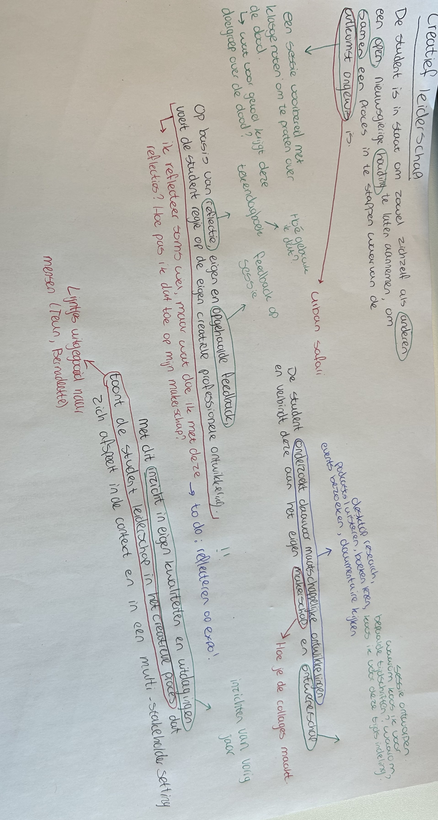 Creatief leiderschap
De student is in staat om zowel zichzelf als anderen
een open nieuwsgierige houding te laten aannemen, om
samen een proces in te stappen waarvan de
uitkomst ongewis is
→ urban safari
Een sessie voorbereid met
klasgenoten om te praten over
de dood.
↳ wat voor gevoel krijgt deze
doelgroep over de dood?
tekendagboek
Hoe gebruik
ik dit?
Feedback op
sessie
Op basis van reflectie, eigen en opgehaalde feedback,
voert de student regie op de eigen creatieve professionele ontwikkeling.
↳ ik reflecteer soms wel, maar wat doe ik met deze → to do: reflecteren op expo!
reflecties? Hoe pas ik dat toe op mijn makerschap?
!!
De student onderzoekt daarvoor maatschappelijke ontwikkelingen
en verbindt deze aan het eigen makerschap en ontwerperschap
desktop research,
podcasts luisteren, boeken lezen,
events bezoeken, documentaire kijken
sessie ontworpen
waarom kies ik voor
bepaalde
waarom
kies ik voor deze
→ Hoe je de collages maakt.
inzichten van vorig
jaar
met dit inzicht in eigen kwaliteiten en uitdagingen
toont de student leiderschap in het creatieve proces, dat
zich afspeelt in de context en in een multi-stakeholder setting
Lijntjes uitgegooid naar
mensen (Teun, Bernadette)